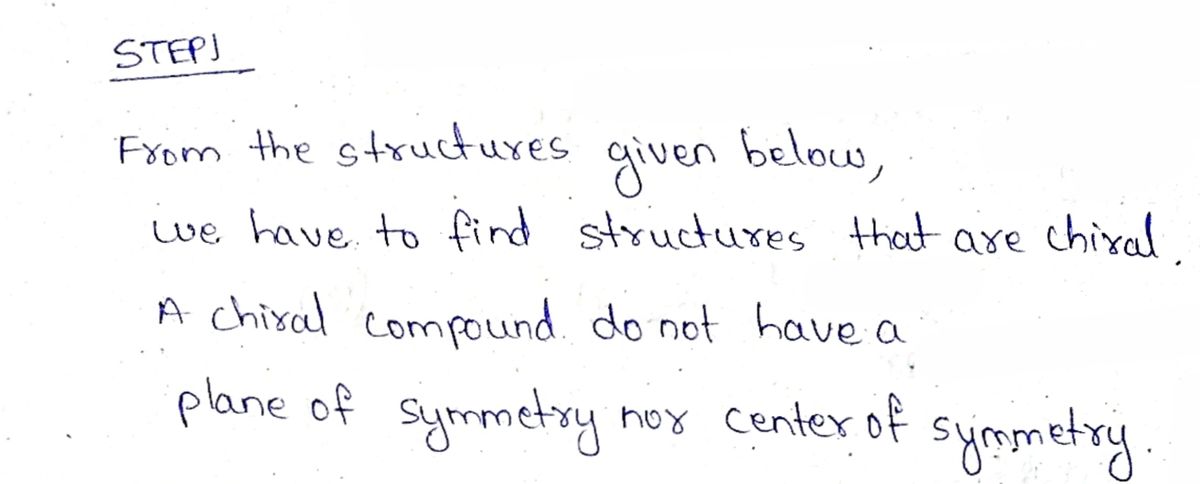 STEP1
From the structures given below,
we have to find structures that are chiral.
A chiral compound do not have a
plane of symmetry nor center of symmetry.